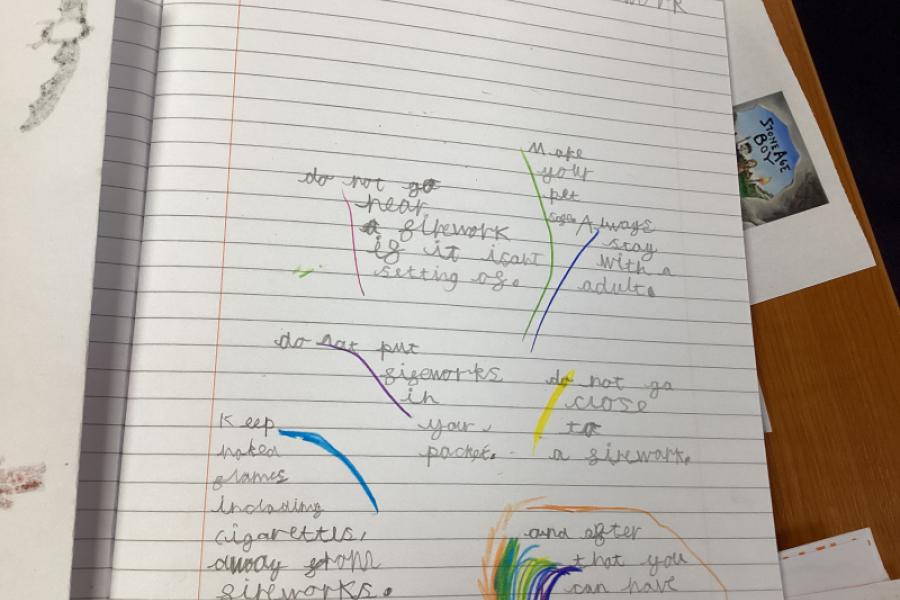 do not go
near
a firework
if it isant
setting of.
Make
your
pet
Always
stay
with a
adult.
do not put
fireworks
in
your
pocket.
do not go
close
to
a firework.
Keep
naked
flames
including
cigarettes,
away from
fireworks.
and after
that you
can have
STONE AGE
BOY